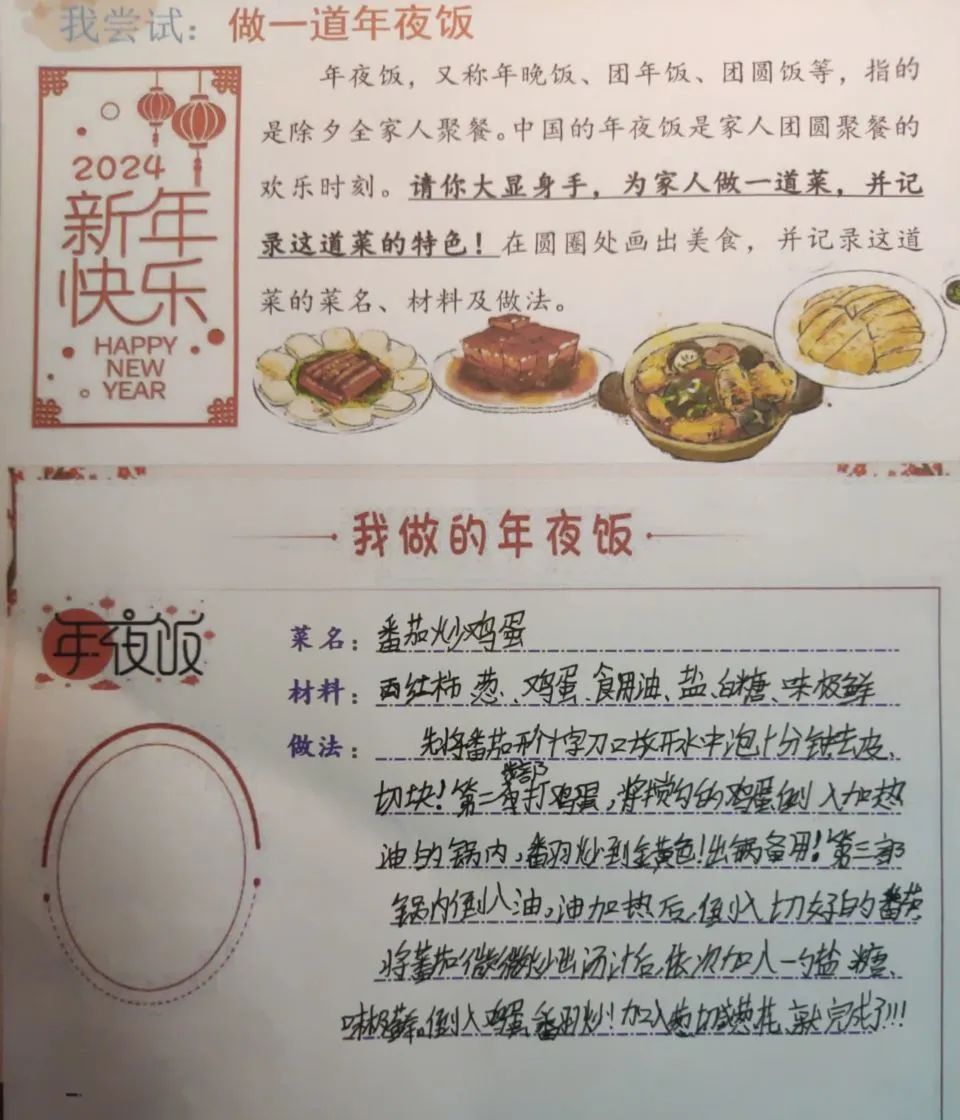 我尝试：做一道年夜饭
年夜饭，又称年晚饭、团年饭、团圆饭等，指的
是除夕全家人聚餐。中国的年夜饭是家人团圆聚餐的
欢乐时刻。请你大显身手，为家人做一道菜，并记
录这道菜的特色！在圆圈处画出美食，并记录这道
菜的菜名、材料及做法。
2024
新年
快乐
HAPPY
NEW
YEAR
我做的年夜饭
年夜饭
菜名：番茄炒鸡蛋
材料：西红柿 葱、鸡蛋、食用油、盐、白糖、味极鲜
做法：先将番茄开个十字刀口放开水中泡十分钟去皮、
切块！第二部打鸡蛋，将搅匀的鸡蛋倒入加热
油的锅内，番羽炒到金黄色！出锅备用！第三部
锅内倒入油，油加热后，倒入切好的番茄
将蕃茄微微炒出汤汁后，依次加入一勺盐、糖、
味极鲜。倒入鸡蛋番羽炒！加入葱切成葱花，就完成了!!!